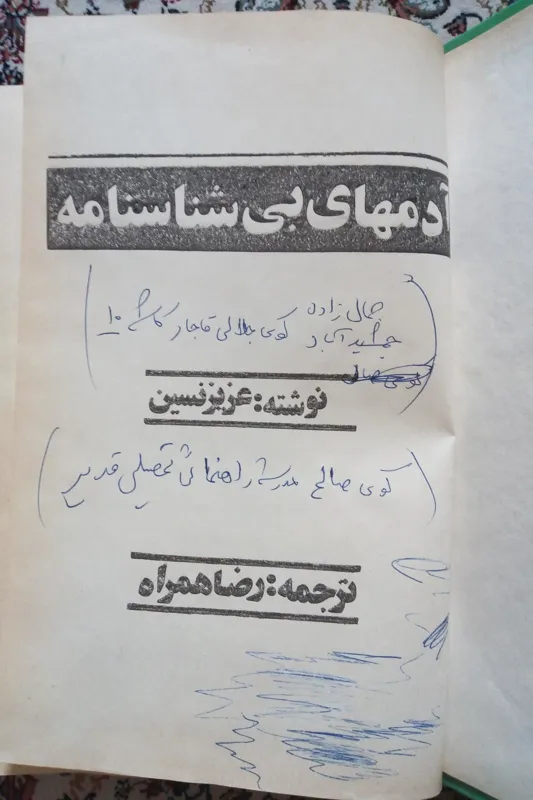 آدمهای بی شناسنامه
جمال زاده
جمشید آباد کوی جلالی قاجار کاشی ۱۰
کوی صالح
نوشته: عزیزنسین
کوی صالح مدرسه راهنمائی تحصیلی قدیر
ترجمه: رضا همراه